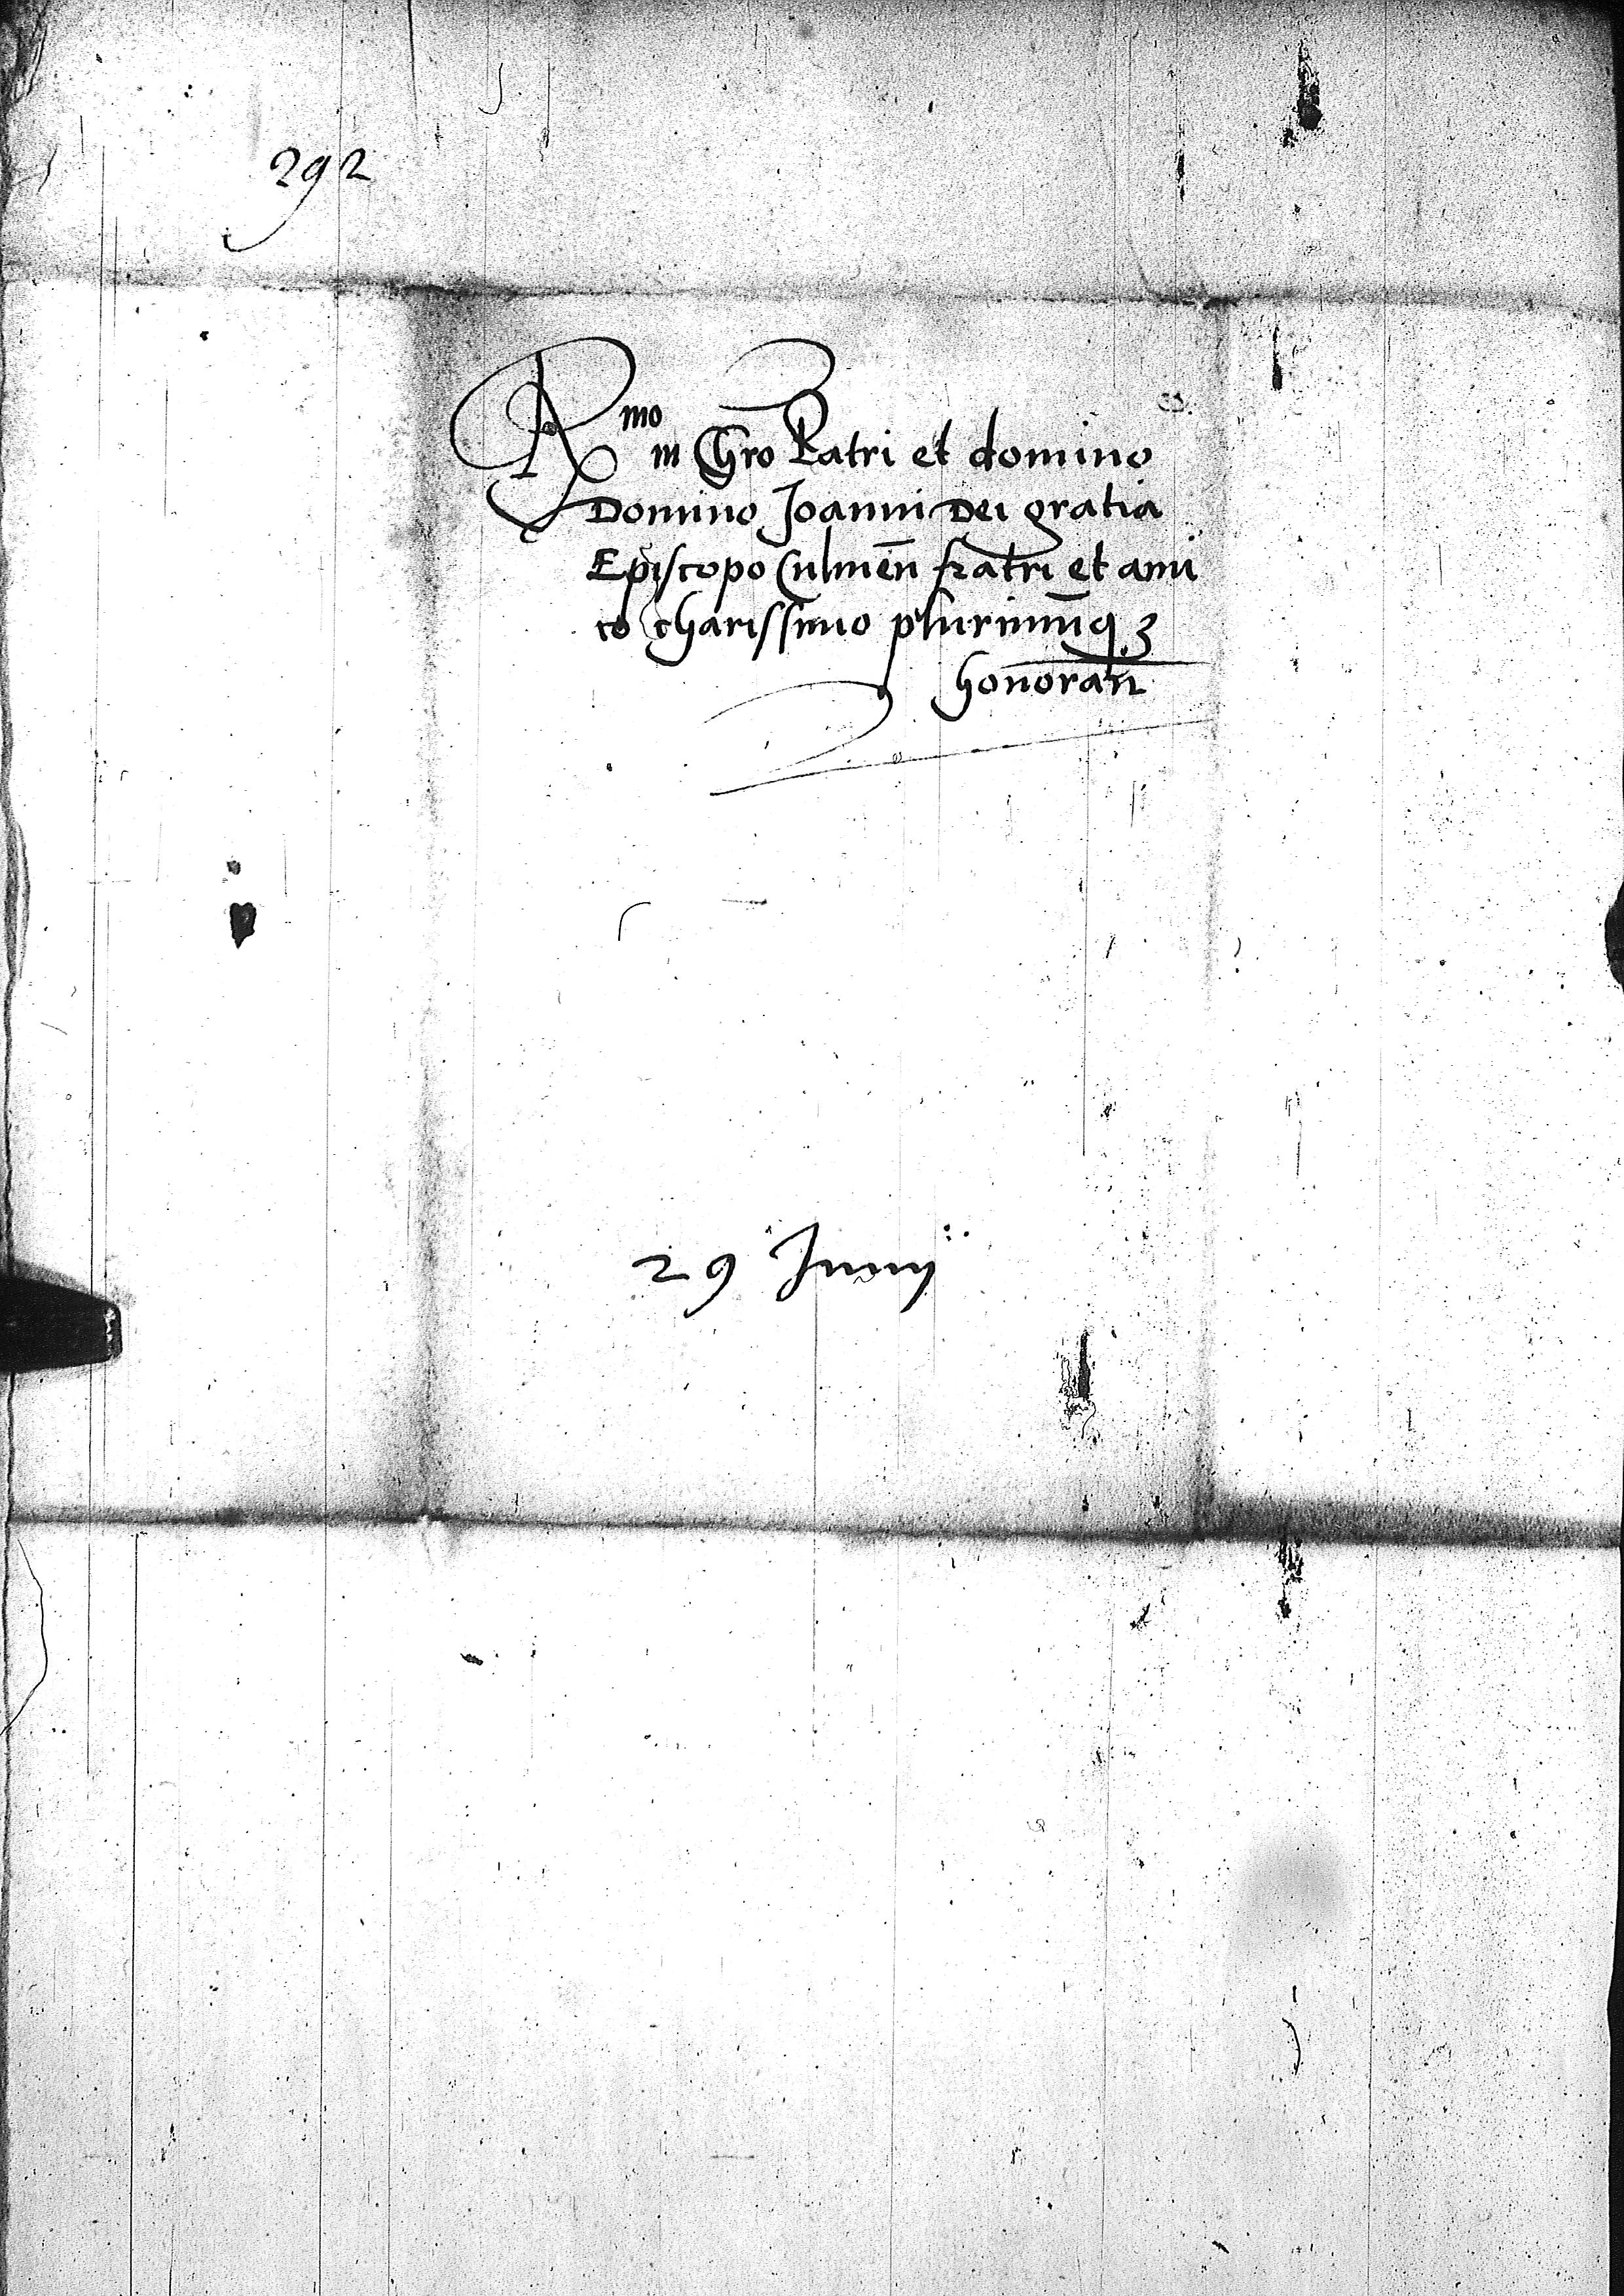 292
Rmo in Chro Patri et domino
Domino Joanni Dei gratia
Episcopo Culmen̄ fratri et ami
co charissimo plurimūqꝫ
honoran̄
29 Junij